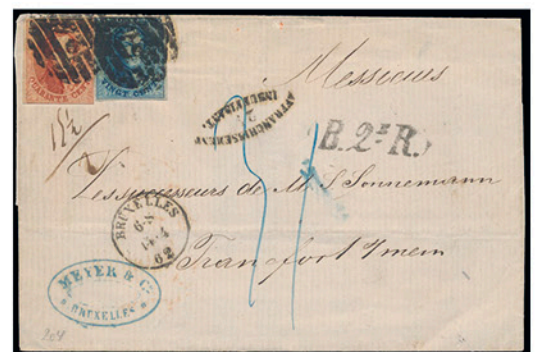 QUARANTE CENT
VINGT CENTS
Messieurs
AFFRANCHISSEMENT
INSUFFISANT.
B.2ᵉR.
Les successeurs de M. S. Sonnemann
BRUXELLES
6-S
62
Francfort s/mein
MEYER & Cᵒ
* BRUXELLES *
204